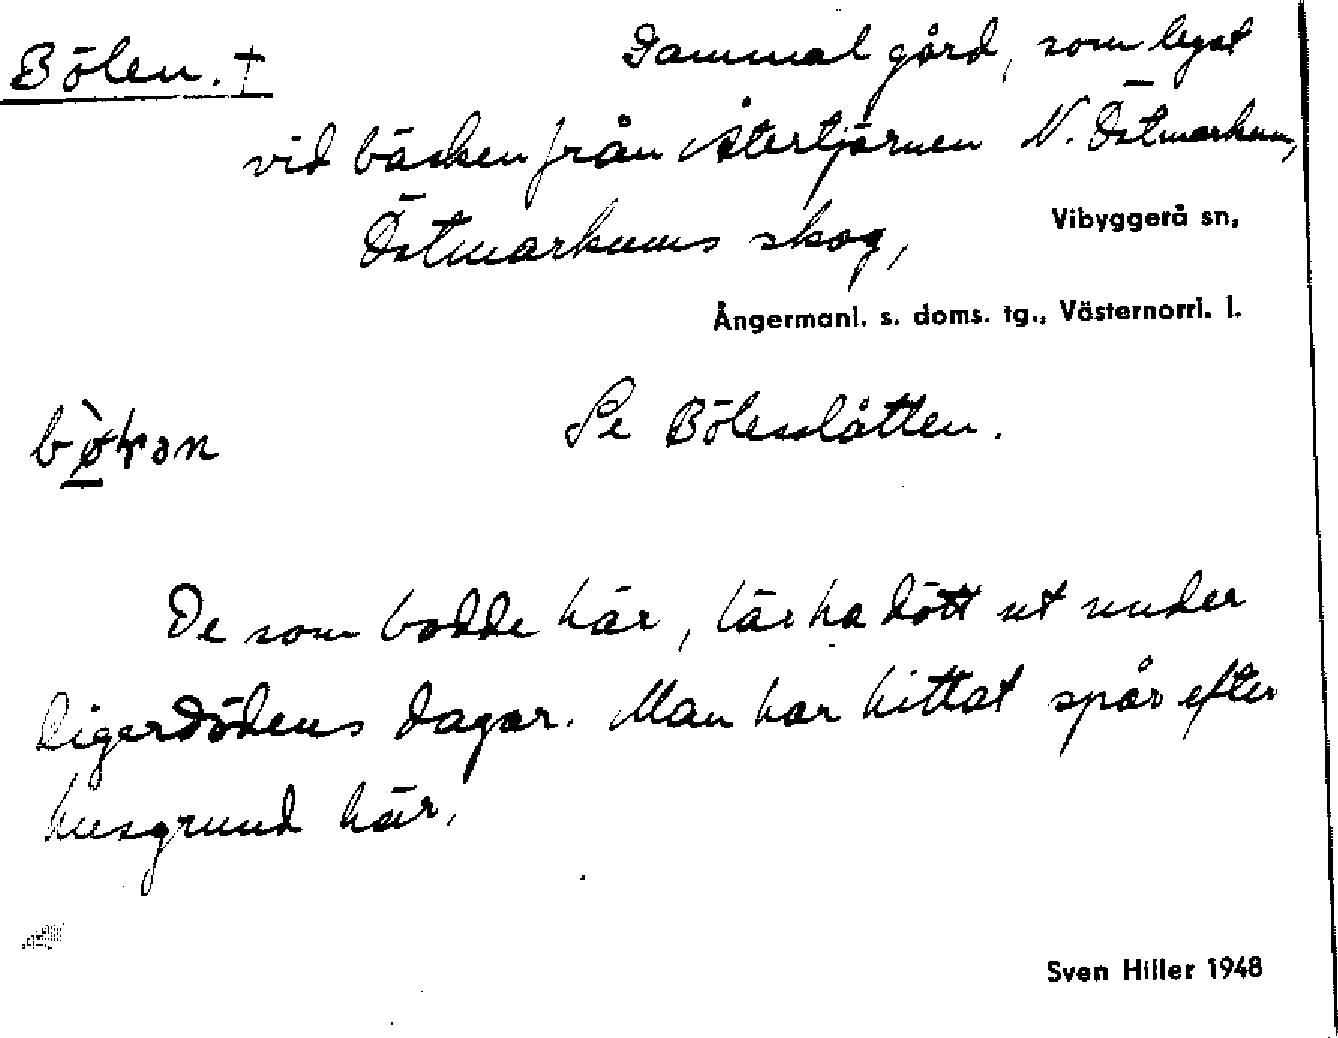 Bölen. † Gammal gård, som legat
vid bäcken från Återtjärnen N. Östmarkum,
Östmarkums skog, Vibyggerå sn,
Ångermanl. s. doms. tg., Västernorrl. l.
Se Böleslåtten.
De som bodde här, lär ha dött ut under
digerdödens dagar. Man har hittat spår efter
husgrund här.
Sven Hiller 1948